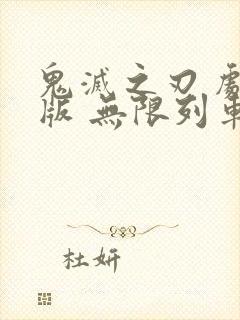 鬼滅之刃劇
版 無限列車
杜妍